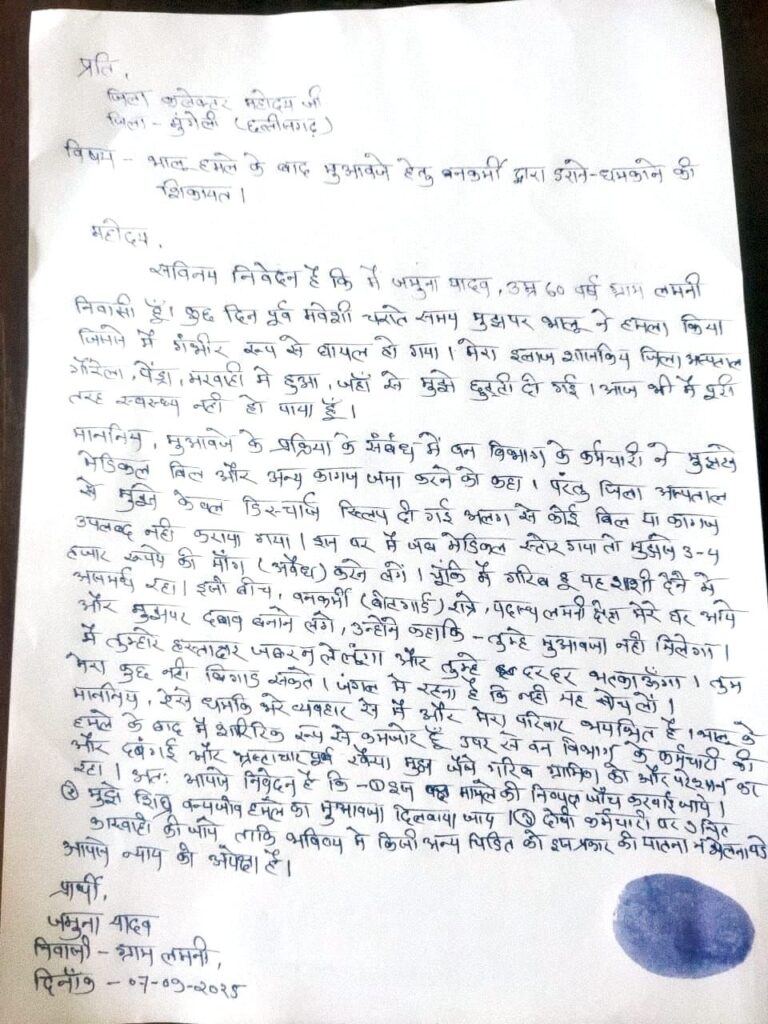 प्रति,
जिला कलेक्टर महोदय जी
जिला - मुंगेली (छत्तीसगढ़)
विषय - भालू हमले के बाद मुआवजे हेतु वनकर्मी द्वारा डराने-धमकाने की
शिकायत।
महोदय,
सविनय निवेदन है कि मैं जमुना यादव, उम्र 60 वर्ष ग्राम लमनी
निवासी हूँ। कुछ दिन पूर्व मवेशी चराते समय मुझपर भालू ने हमला किया
जिसमे में गंभीर रूप से घायल हो गया। मेरा इलाज शासकिय जिला अस्पताल
गौरेला, पेंड्रा, मरवाही मे हुआ, जहाँ से मुझे छुट्टी दी गई। आज भी मै पूरी
तरह स्वस्थ्य नही हो पाया हूँ।
माननिय, मुआवजे के प्रक्रिया के संबंध में वन विभाग के कर्मचारी ने मुझसे
मेडिकल बिल और अन्य कागज जमा करने को कहा। परंतु जिला अस्पताल
से मुझे केवल डिस्चार्ज स्लिप दी गई अलग से कोई बिल या कागज
उपलब्द नही कराया गया। इस पर मै जब मेडिकल स्टोर गया तो मुझसे 3-4
हजार रूपये की माँग (अवैध) करने लगे। चुंकि मै गरिब हू यह राशी देने मे
असमर्थ रहा। इसी बीच, वनकर्मी (बीटगार्ड) राजे, पदस्थ लमनी मेरे घर आये
और मुझपर दबाव बनाने लगे, उन्होंने कहाकि - तुम्हे मुआवजा नही मिलेगा।
मैं तुम्हारे हस्ताक्षर जबरन ले लूंगा और तुम्हे दर दर भटकाऊँगा। तुम
मेरा कुछ नही बिगाड़ सकते। जंगल मे रहना है कि नही यह सोच लो।
माननिय, ऐसे धमकि भरे व्यवहार से मैं और मेरा परिवार भयभित है। भालू के
हमले के बाद मैं शारिरिक रूप से कमजोर हूँ उपर से वन विभाग के कर्मचारी की
और दबंगई और भ्रष्टाचार पूर्ण रवैया मुझ जैसे गरिब ग्रामिण को और परेशान कर
रहा। अतः आपसे निवेदन है कि - ① इस मामले की निष्पक्ष जाँच करवाई जाये।
② मुझे शिघ्र वन्यजीव हमले का मुआवजा दिलवाया जाय। ③ दोषी कर्मचारी पर उचित
कारवाही की जाये ताकि भविष्य मे किसी अन्य पिडित को इस प्रकार की यातना न झेलना पडे
आपसे न्याय की अपेक्षा है।
प्रार्थी,
जमुना यादव
निवासी - ग्राम लमनी,
दिनाँक - 07-09-2025